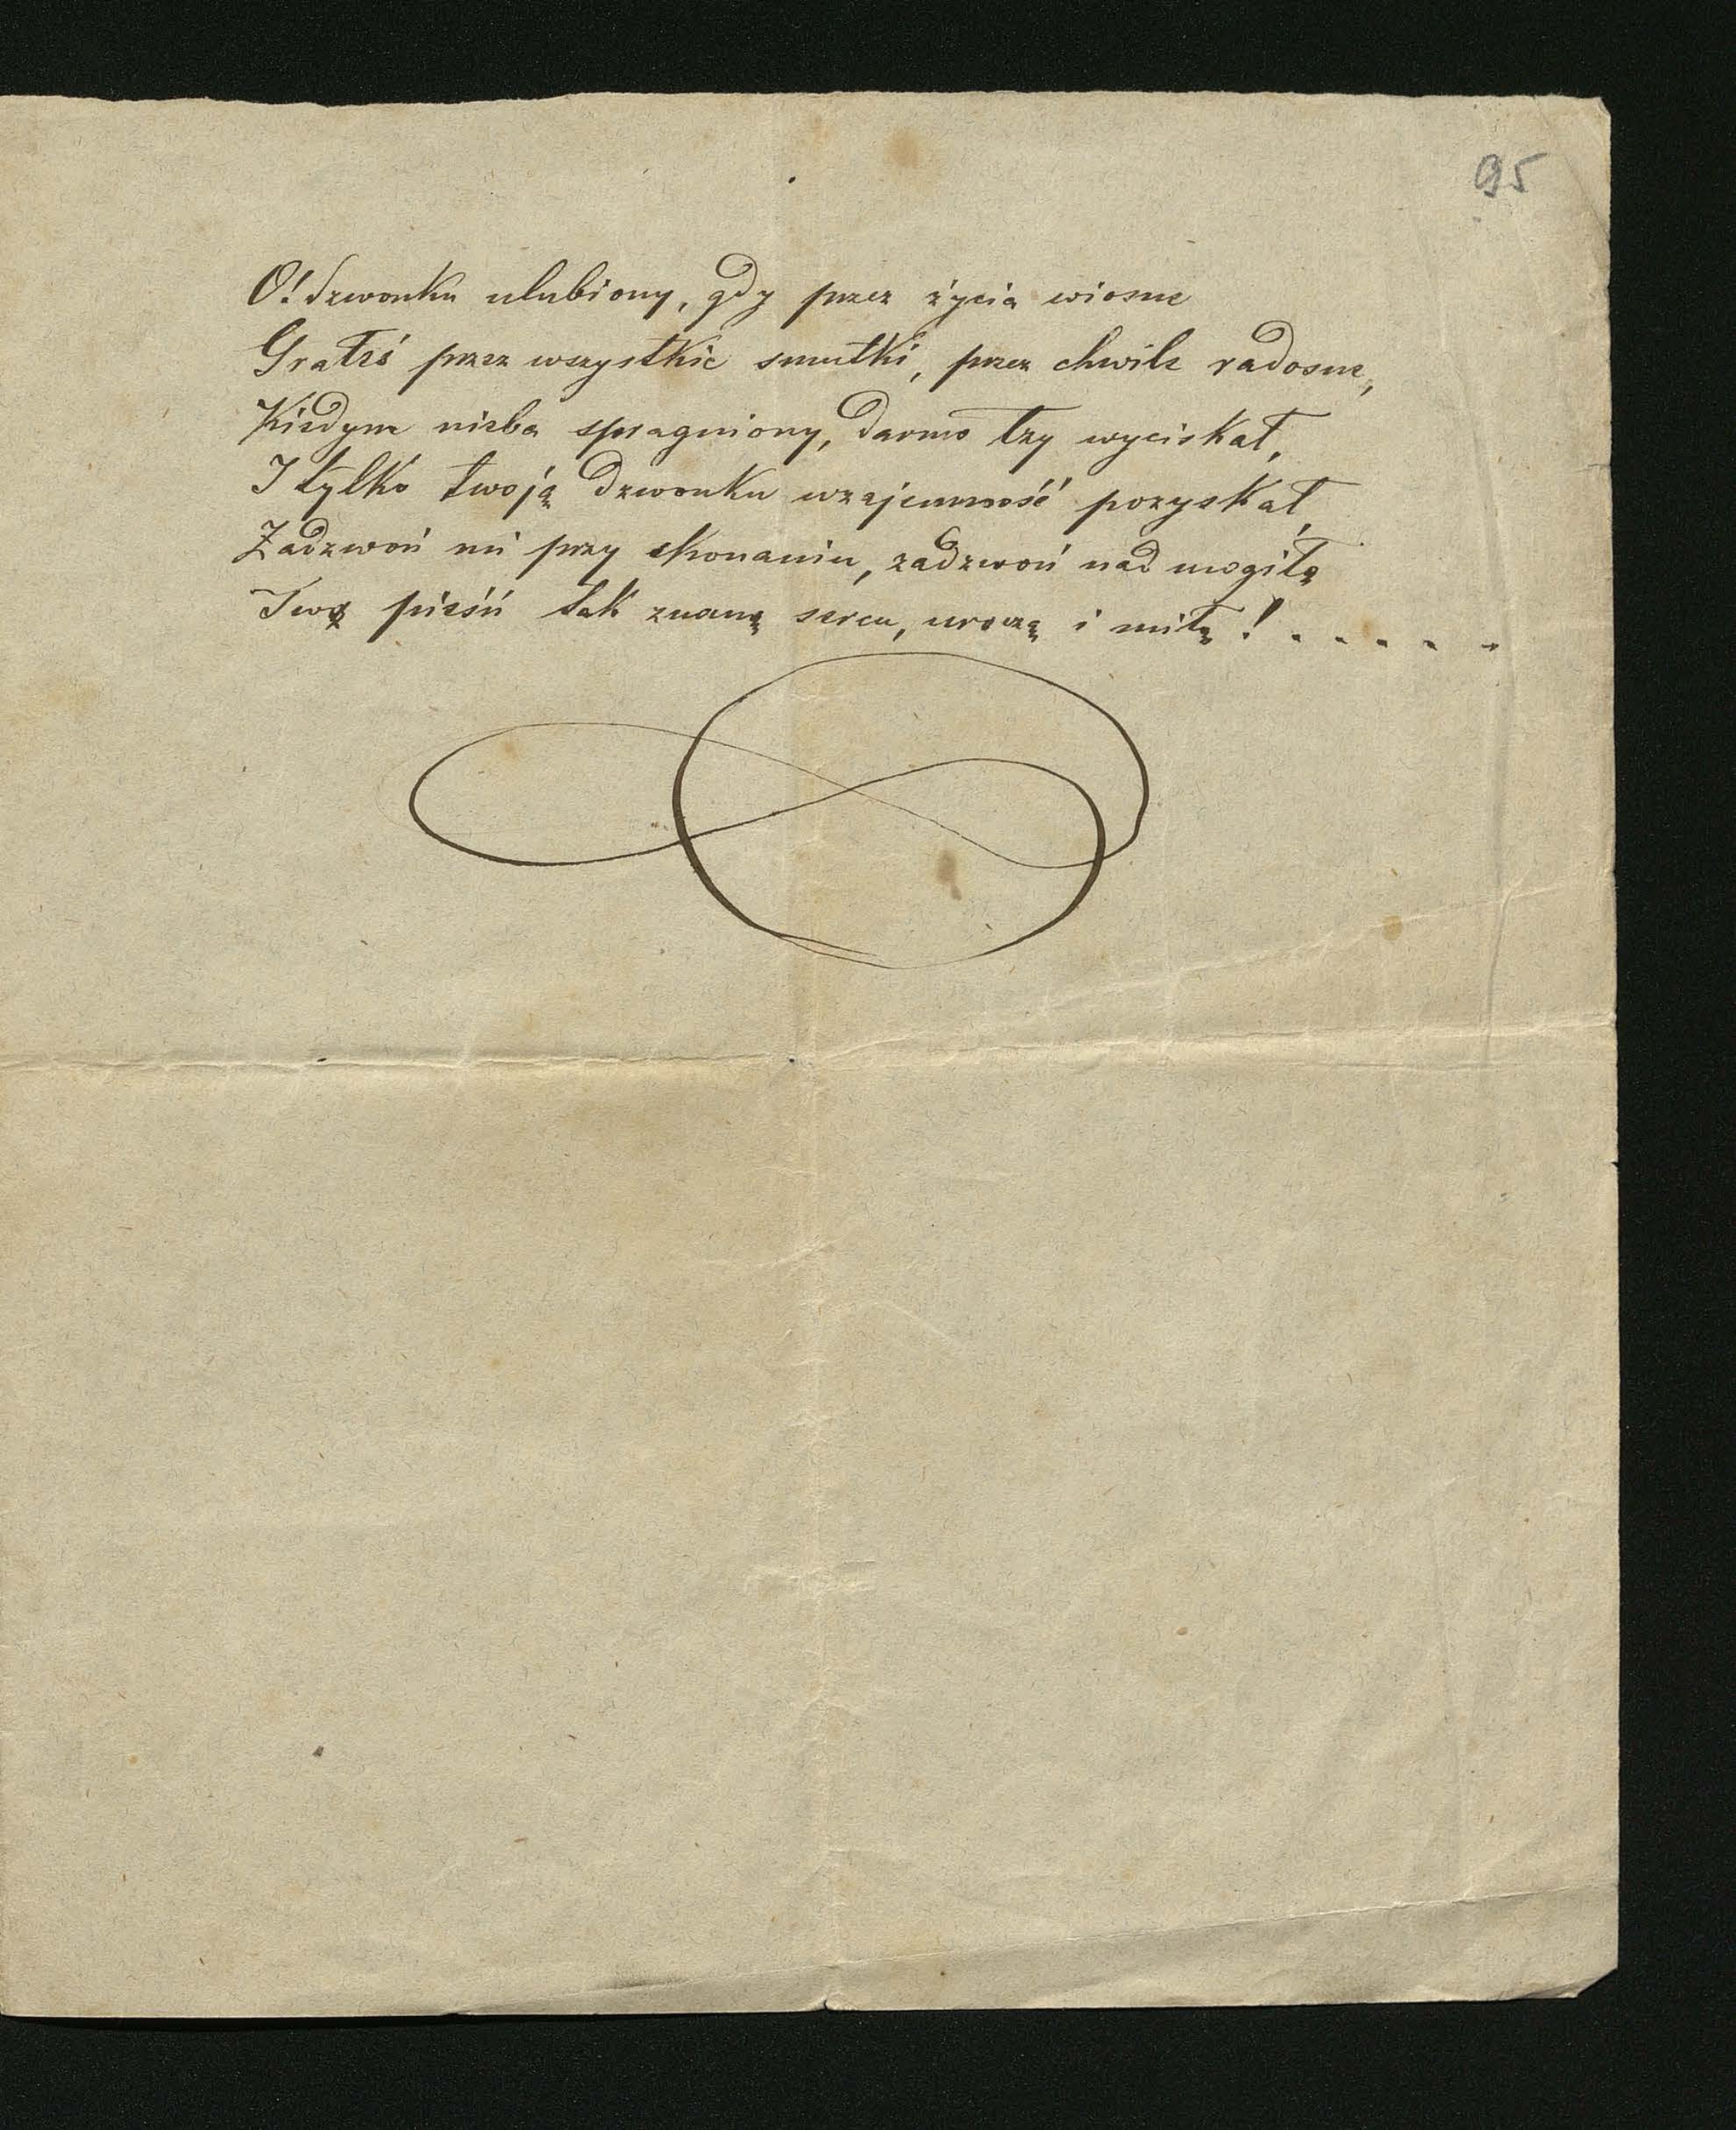 95
O! dzwonku ulubiony, gdy przez życia wiosne
Grałeś przez wszystkie smutki, przez chwile radosne,
Kiedym nieba spragniony, darmo łzy wyciskał,
I tylko twoją dzwonku wzajemność pozyskał,
Zadzwoń mi przy skonaniu, zadzwoń nad mogiłą
Twą pieśń tak znaną sercu, uroczą i miłą! . . . . .